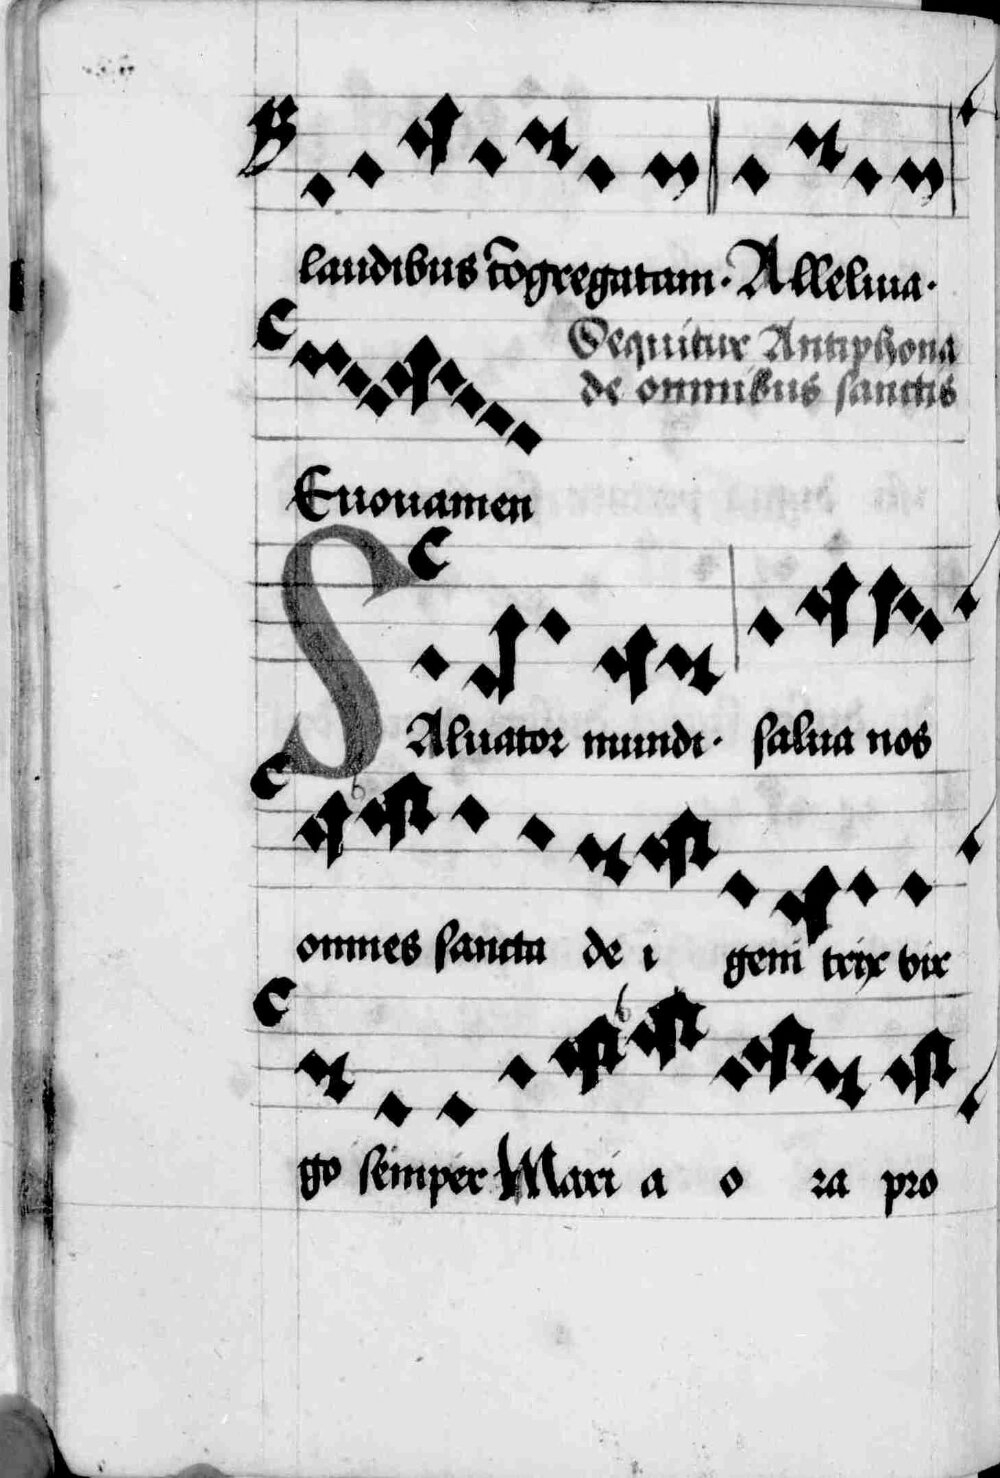 laudibus cõgregatam· Alleluia·
Sequitur Antiphona
de omnibus sanctis
Euouamen
SAluator mundi· salua nos
omnes sancta de i geni trix vir
go semper Mari a o ra pro